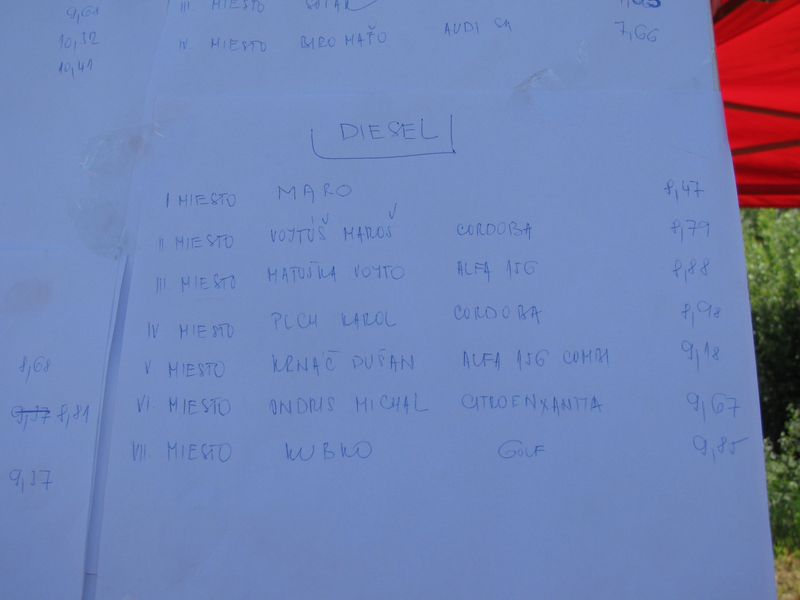 9,61
10,32
10,41
III. MIESTO
IV. MIESTO BIRO MAŤO AUDI S4 7,66
DIESEL
I MIESTO MARO 8,47
II MIESTO VOJTÚŠ MAROŠ CORDOBA 8,79
III. MIESTO MATUŠKA VOJTO ALFA 156 8,88
IV MIESTO PLCH KAROL CORDOBA 8,98
V MIESTO KRNÁČ DUŠAN ALFA 156 COMBI 9,18
VI. MIESTO ONDRIS MICHAL CITROEN XANTIA 9,67
VII. MIESTO KUBKO GOLF 9,85
8,68
9,37 8,81
9,37